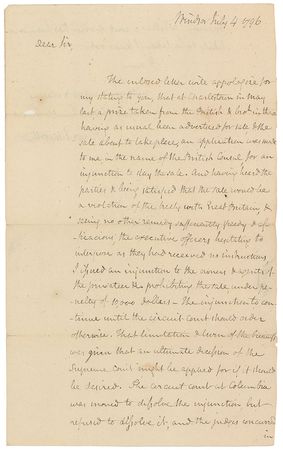 Windsor July 4 1796
Dear Sir,
The inclosed letter will appologise for
my stating to you, that at Charlestown in may
last a prize taken from the British & brot in there
having as usual been advertised for sale & the
sale about to take place, an application was made
to me in the name of the British Consul for an
injunction to stay the sale. And having heard the
parties & being satisfied that the sale would be
a violation of the treaty with Great Britain &
seeing no other remedy sufficiently speedy & ef-
ficacious, the executive officers hesitating to
interpose as they had received no instructions,
I issued an injunction to the owners & agents of
the privateer & prohibiting the sale under pe-
nelty of 10000 dollars - The injunction to con-
tinue until the circuit court should order
otherwise. That limitation & turn of the
was given that an ultimate decision of the
Supreme Court might be applied for if it should
be desired. The circuit court at Columbia
was moved to dissolve the injunction but
refused to dissolve it, and the judges concurred
in